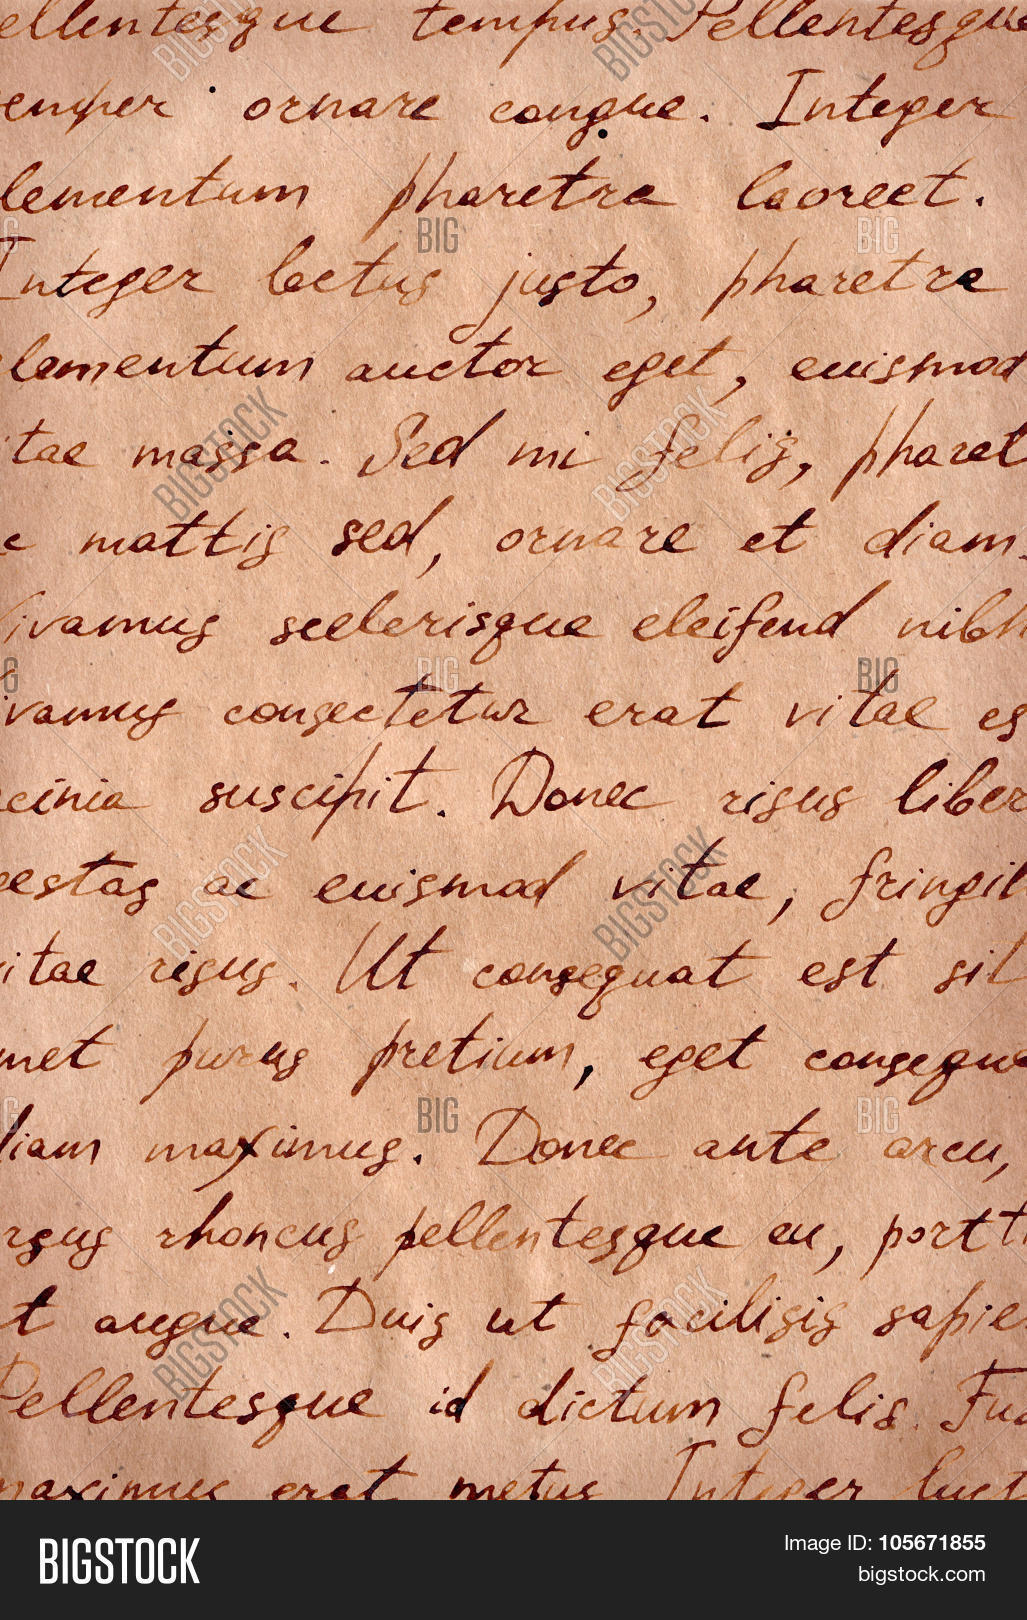 ellentesque tempus. Pellentesque
emper ornare congue. Integer
lementum pharetra laoreet.
Integer lectus justo, pharetra
lementum auctor eget, euismod
tae massa. Sed mi felis, pharet
c mattis sed, ornare et diam.
Vivamus scelerisque eleifend nibh
ivamus consectetur erat vitae eg
cinia suscipit. Donec risus liber
estas ac euismod vitae, fringil
itae risus. Ut consequat est sit
met purus pretium, eget conseque
diam maximus. Donec ante arcu,
rsus rhoncus pellentesque eu, portti
t augue. Duis ut facilisis sapie
Pellentesque id dictum felis. Fus
maximus erat metus. Integer luct
BIGSTOCK
Image ID: 105671855
bigstock.com